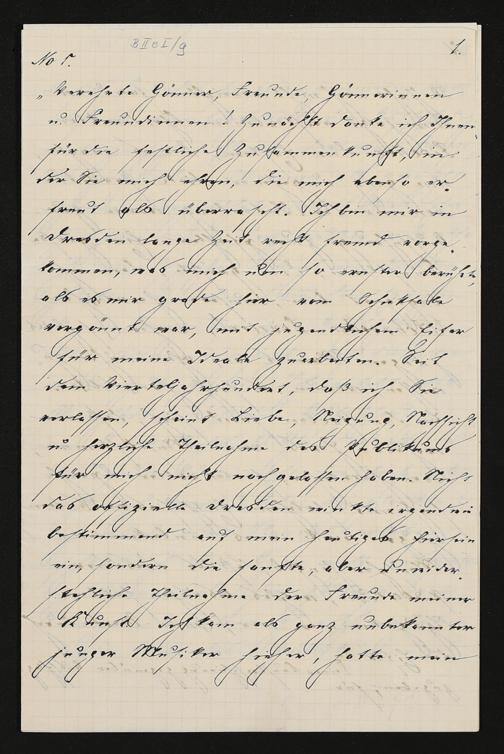 B II c I/g
1.
No 5.
„Verehrte Gönner, Freunde, Gönnerinnen
u. Freundinnen! Zunächst danke ich Ihnen
für die festliche Zusammenkunft, in
der Sie mich ehren, die mich ebenso er-
freut als überrascht. Ich bin mir in
Dresden lange Zeit recht fremd vorge-
kommen, was mich um so ernster berührte,
als es mir grade hier vom Schicksale
vergönnt war, mit jugendlichem Eifer
für meine Ideale zu arbeiten. Seit
dem Vierteljahrhundert, daß ich Sie
verlassen, scheint Liebe, Neigung, Nachsicht
u. herzliche Theilnahme des Publikums
für mich nicht nachgelassen haben. Nicht
das offizielle Dresden wirkte irgendwie
bestimmend auf mein heutiges Hiersein
ein, sondern die sanfte, aber unwider-
stehliche Theilnahme der Freunde meiner
Kunst. Ich kam als ganz unbekannter
junger Musiker hieher, hatte mein